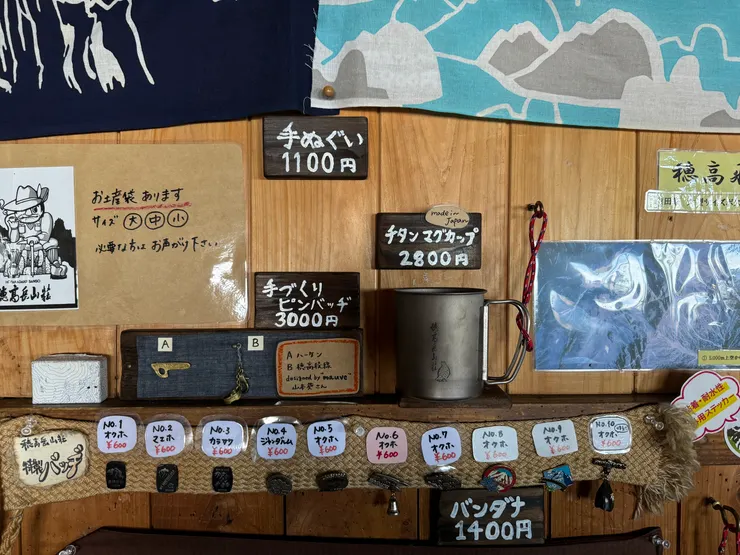 手ぬぐい
1100円
お土産袋 あります
サイズ 大 中 小
必要な方は お声がけ下さい
穂高岳山荘
made in
Japan
チタン マグカップ
2800円
手づくり
ピンバッヂ
3000円
A
B
A ハーケン
B 穂高
designed by "mauve"
山本 さん
穂高
穂高岳山荘
3,000m
・耐水性
ステッカー
穂高岳山荘
特製バッヂ
No.1
オクホ
¥600
No.2
マエホ
¥600
No.3
カラサワ
¥600
No.4
ジャンダルム
¥600
No.5
オクホ
¥600
No.6
オクホ
¥600
No.7
オクホ
¥600
No.8
オクホ
¥600
No.9
オクホ
¥600
No.10
オクホ
¥600
バンダナ
1400円